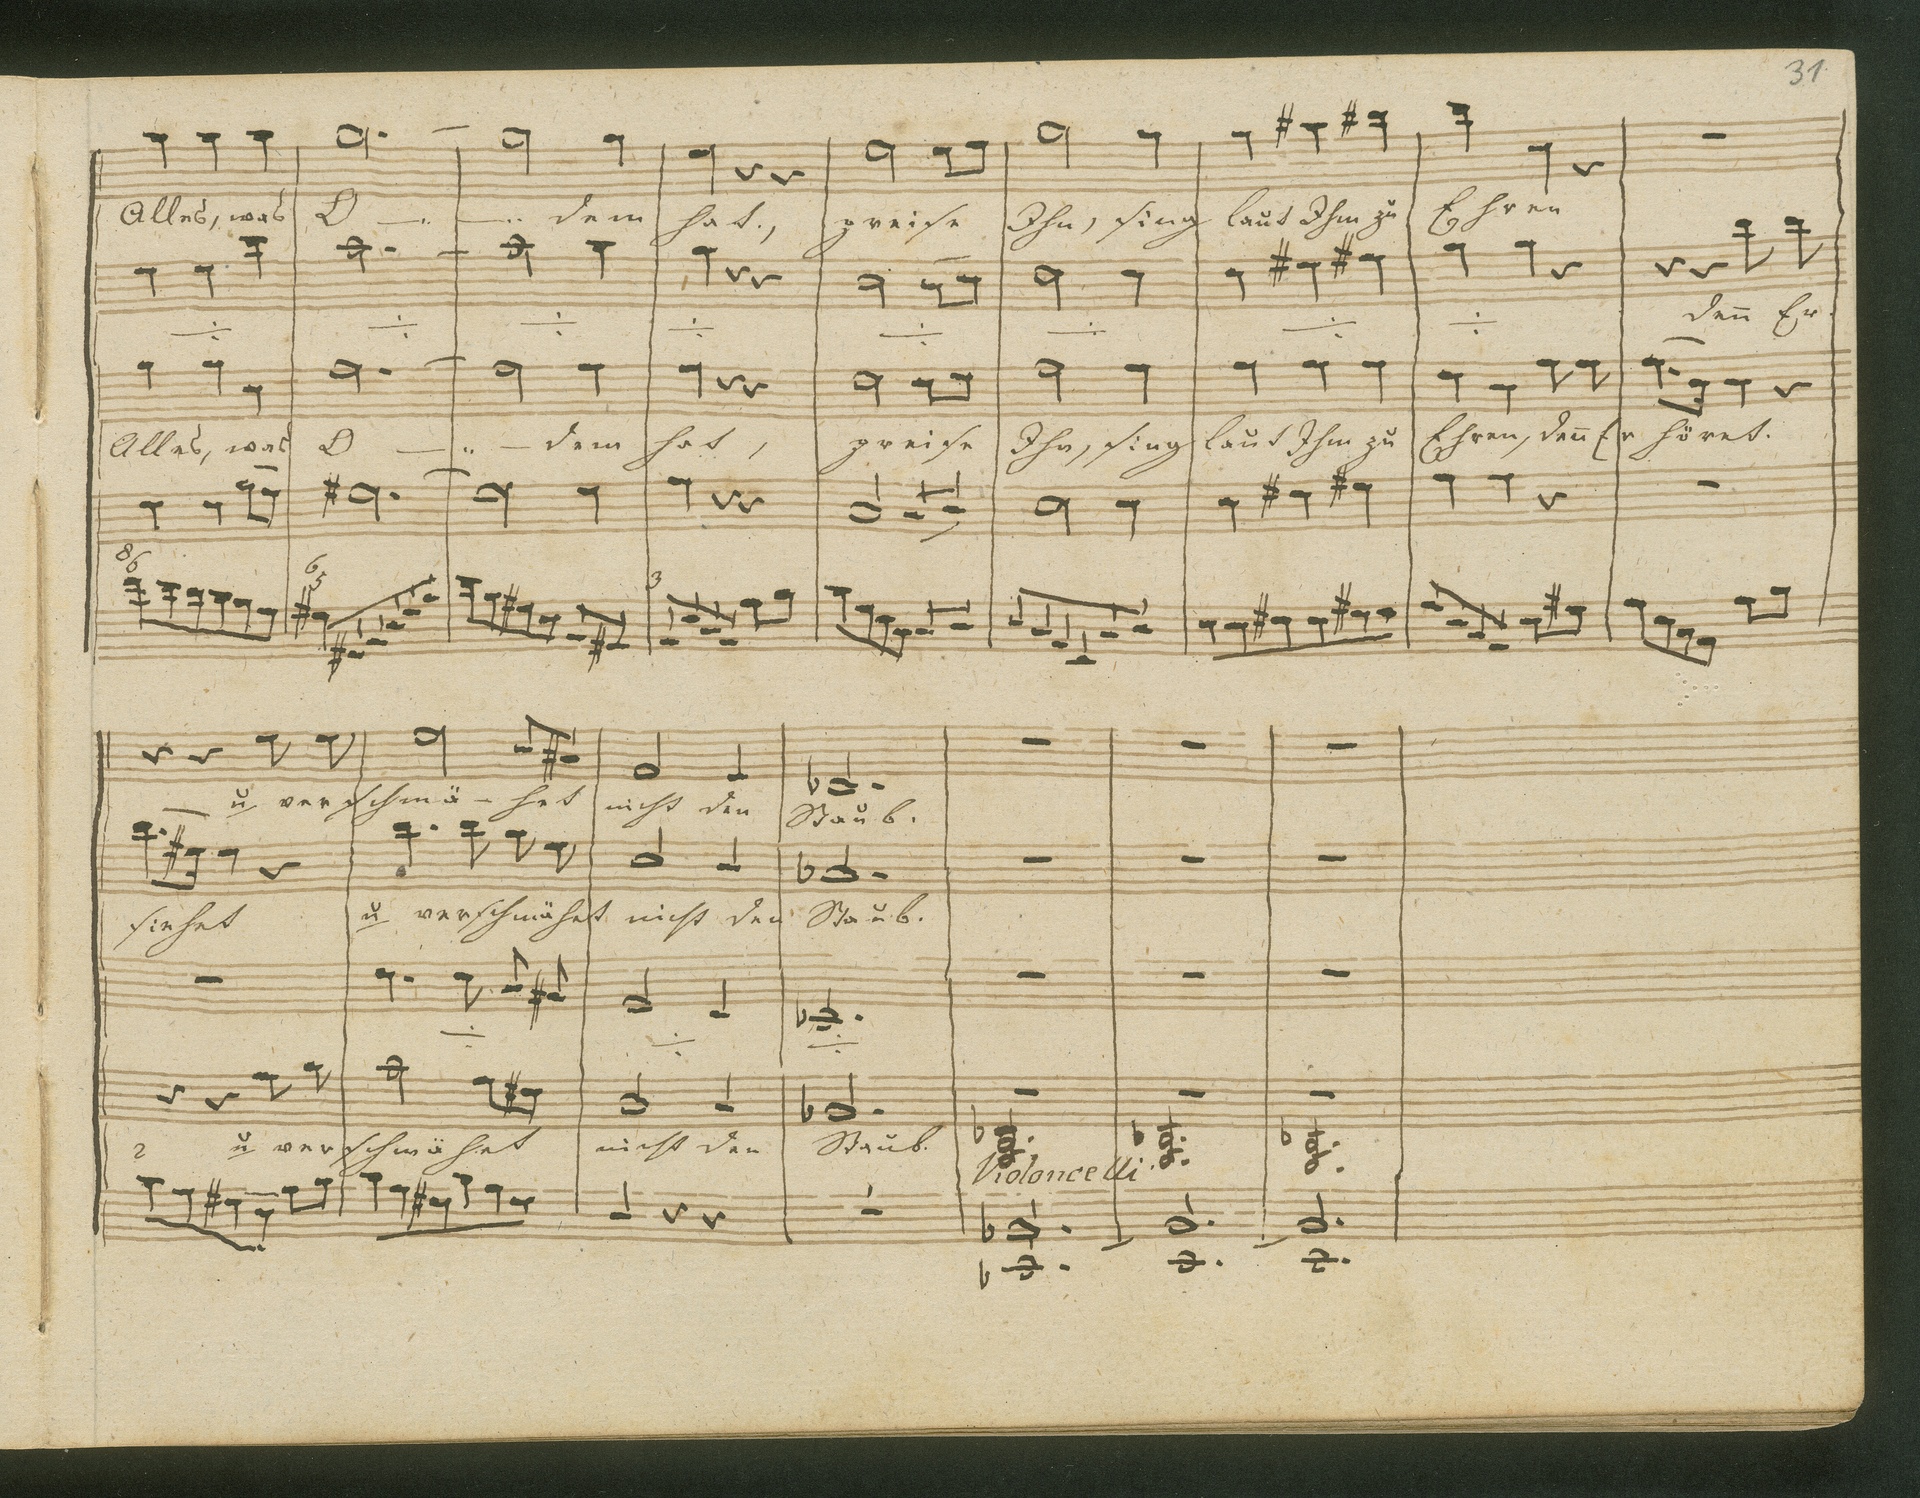 31
Alles, was O - - dem hat, preise Ihn, sing laut Ihm zu Ehren
den̄ Er
Alles, was O - - dem hat, preise Ihn, sing laut Ihm zu Ehren, den̄ Er höret.
86 6 5 3
u verschmä - het nicht den Staub.
siehet u verschmähet nicht den Staub.
2 u verschmähet nicht den Staub.
Violoncelli